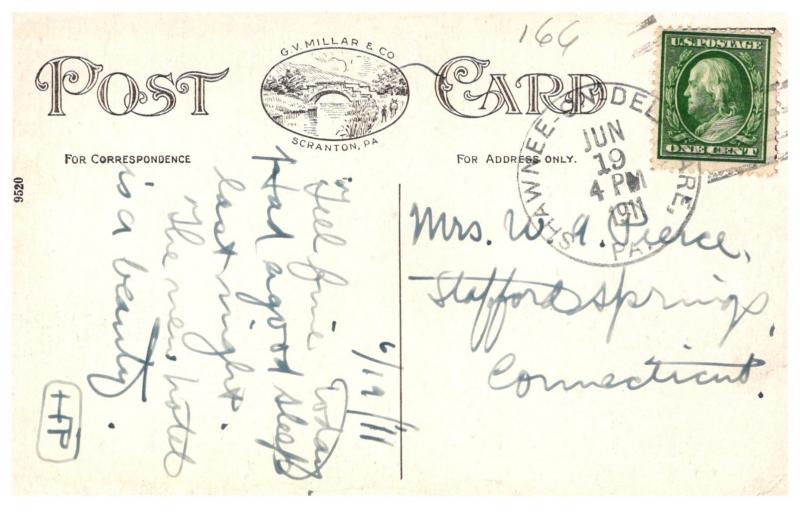 166
G.V. MILLAR & CO
POST CARD
SCRANTON, PA
FOR CORRESPONDENCE
FOR ADDRESS ONLY.
9520
U.S. POSTAGE
ONE CENT
SHAWNEE-ON-DELAWARE, PA.
JUN
19
4 PM
1911
6/19/11
Feel fine today
Had a good sleep
last night.
The new hotel
is a beauty.
HP
Mrs. W. A. Pierce,
Stafford Springs,
Connecticut.